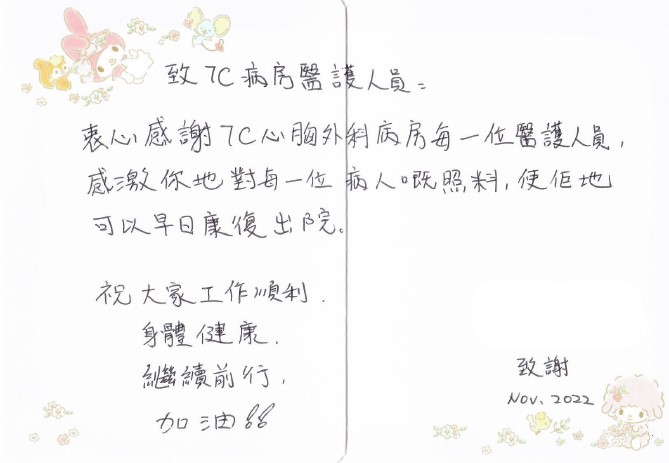 致 7C 病房醫護人員：
衷心感謝 7C 心胸外科病房每一位醫護人員，
感激你地對每一位 病人嘅照料，使佢地
可以早日康復出院。
祝 大家工作順利．
身體健康．
繼續前行，
加油!!
致謝
Nov. 2022